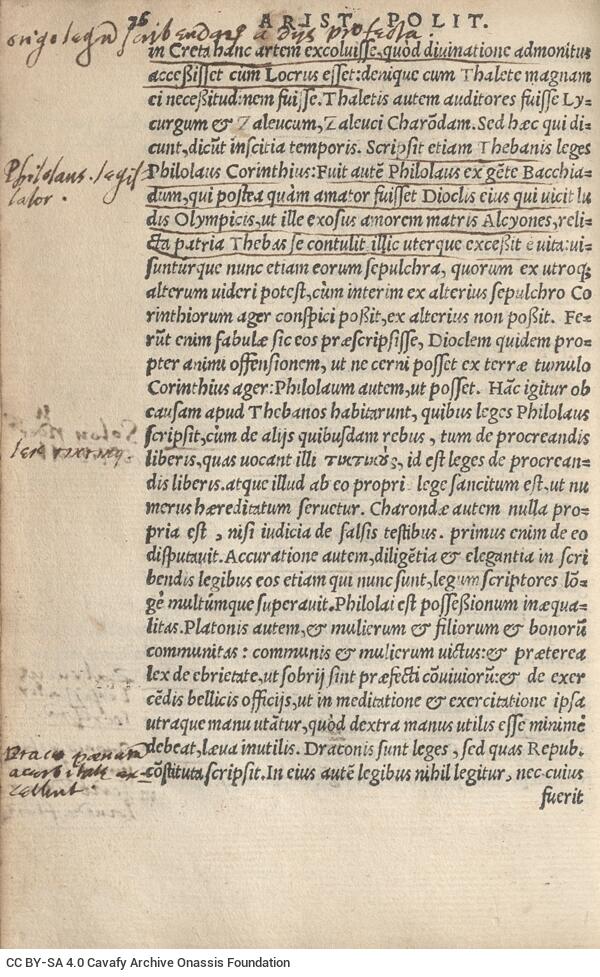 76
ARIST. POLIT.
in Creta hanc artem excoluisse, quòd diuinatione admonitus
accessisset cùm Locrus esset: denique cum Thalete magnam
ei necessitudinem fuisse. Thaletis autem auditores fuisse Ly-
curgum & Zaleucum, Zaleuci Charōdam. Sed hæc qui di-
cunt, dicūt inscitia temporis. Scripsit etiam Thebanis leges
Philolaus Corinthius: Fuit autē Philolaus ex gēte Bacchia-
dum, qui postea quàm amator fuisset Dioclis eius qui uicit lu
dis Olympicis, ut ille exosus amorem matris Alcyones, reli-
cta patria Thebas se contulit illic uterque excessit è uita: ui-
sunturque nunc etiam eorum sepulchra, quorum ex utroq;
alterum uideri potest, cùm interim ex alterius sepulchro Co
rinthiorum ager conspici possit, ex alterius non possit. Fe-
rūt enim fabulæ sic eos præscripsisse, Dioclem quidem pro-
pter animi offensionem, ut ne cerni posset ex terræ tumulo
Corinthius ager: Philolaum autem, ut posset. Hāc igitur ob
causam apud Thebanos habitarunt, quibus leges Philolaus
scripsit, cùm de alijs quibusdam rebus, tum de procreandis
liberis, quas uocant illi τικτικὺς, id est leges de procrean-
dis liberis. atque illud ab eo propri lege sancitum est, ut nu
merus hæreditatum seruetur. Charondæ autem nulla pro-
pria est, nisi iudicia de falsis testibus. primus enim de eo
disputauit. Accuratione autem, diligētia & elegantia in scri
bendis legibus eos etiam qui nunc sunt, legum scriptores lō-
gè multúmque superauit. Philolai est possessionum inæqua-
litas. Platonis autem, & mulierum & filiorum & bonorū
communitas: communis & mulierum uictus: & præterea
lex de ebrietate, ut sobrij sint præfecti cōuiuiorū: & de exer
cēdis bellicis officijs, ut in meditatione & exercitatione ipsa
utraque manu utātur, quòd dextra manus utilis esse minimè
debeat, læua inutilis. Draconis sunt leges, sed quas Repub.
cōstituta scripsit. In eius autē legibus nihil legitur, nec cuius
fuerit
origo legū scribendarū a dijs profecta.
Philolaus. legis
lator.
Draco pœnarū
acerbitate ex-
cellent.
CC BY-SA 4.0 Cavafy Archive Onassis Foundation